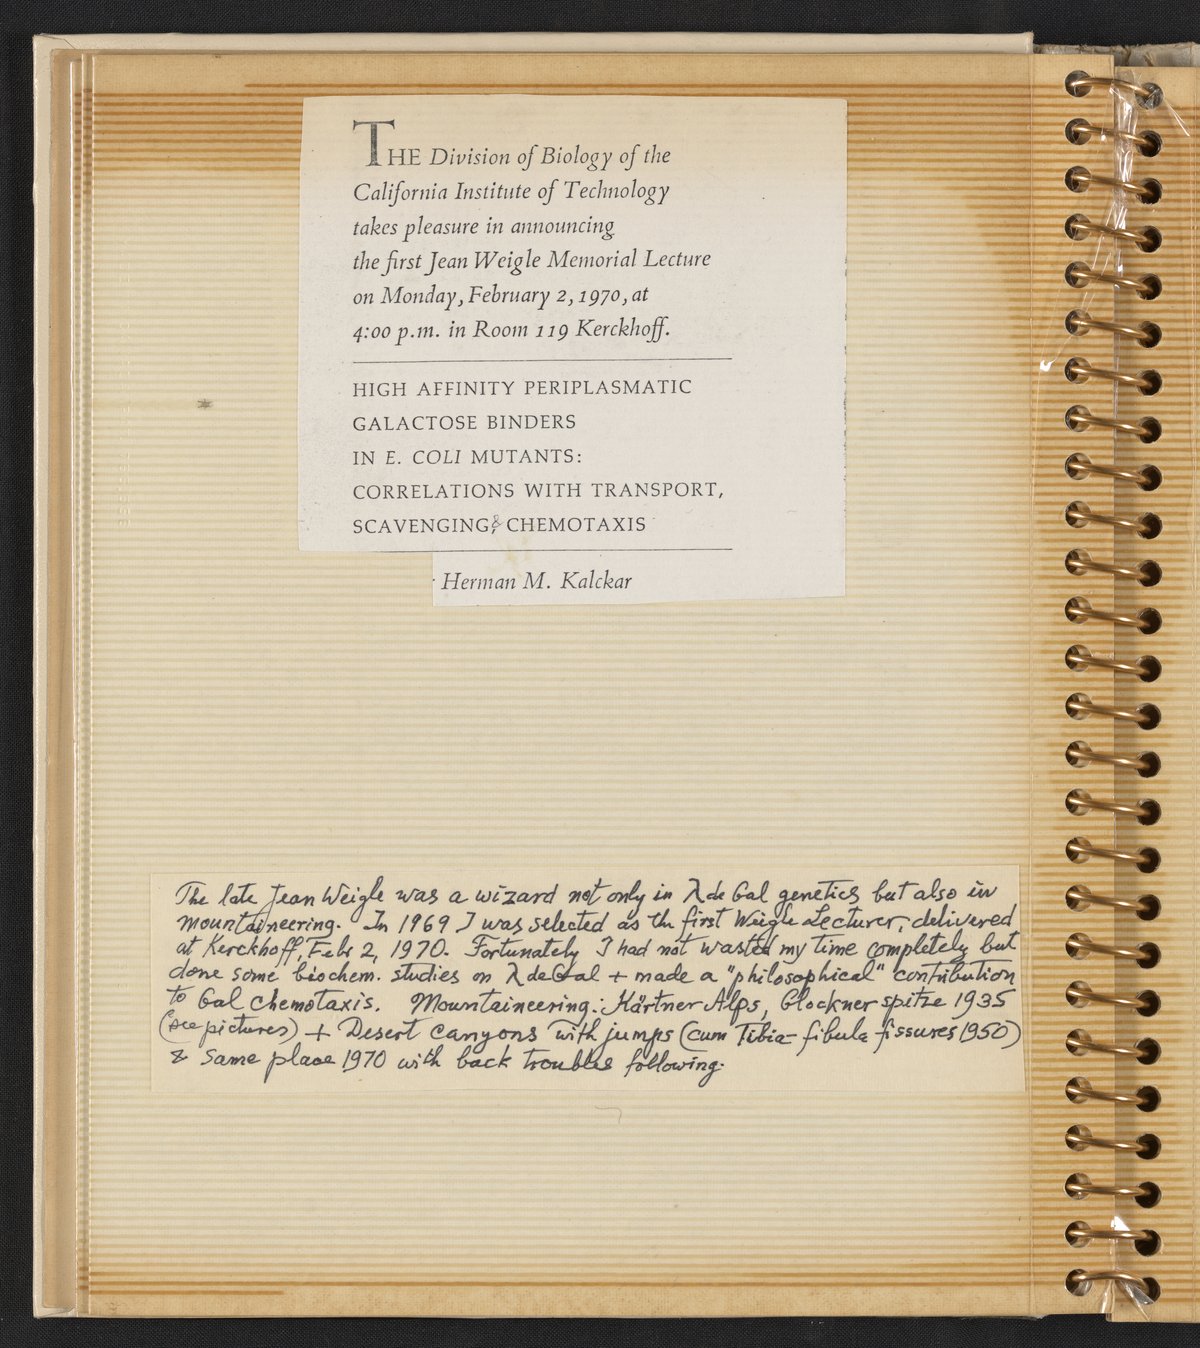 THE Division of Biology of the
California Institute of Technology
takes pleasure in announcing
the first Jean Weigle Memorial Lecture
on Monday, February 2, 1970, at
4:00 p.m. in Room 119 Kerckhoff.
HIGH AFFINITY PERIPLASMATIC
GALACTOSE BINDERS
IN E. COLI MUTANTS:
CORRELATIONS WITH TRANSPORT,
SCAVENGING, & CHEMOTAXIS
Herman M. Kalckar
The late Jean Weigle was a wizard not only in λ de Gal genetics but also in
mountaineering. In 1969 I was selected as the first Weigle Lecturer, delivered
at Kerckhoff, Febr 2, 1970. Fortunately I had not wasted my time completely but
done some biochem. studies on λ de Gal + made a "philosophical" contribution
to Gal chemotaxis. Mountaineering: Kärtner Alps, Glockner spitze 1935
(see pictures) + Desert canyons with jumps (cum Tibia-fibula fissures 1950)
& same place 1970 with back troubles following.